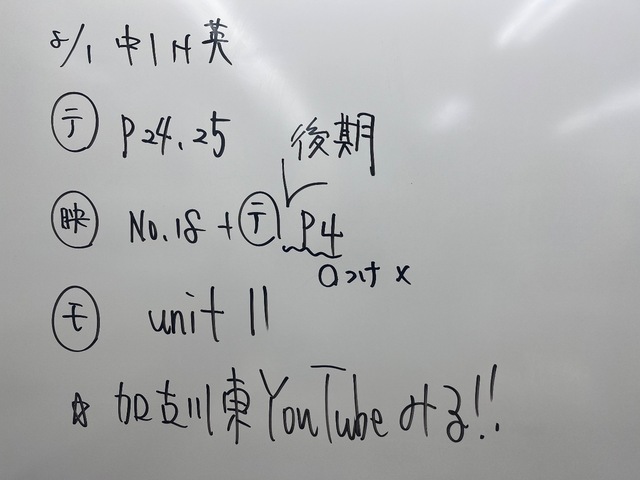 8/1 中1H英
㋢ P24.25
後期
映 No.18 + ㋢ P4
〇つけ×
㋲ unit 11
☆ 加古川東YouTubeみる!!